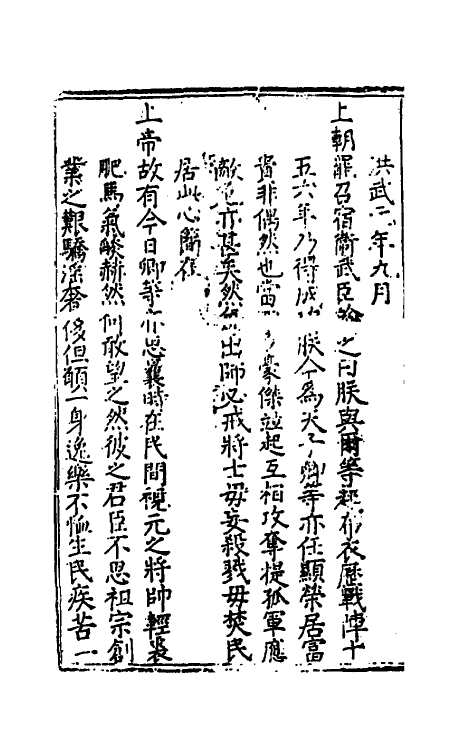 洪武二年九月
上朝罷召宿衛武臣諭之曰朕與爾等起布衣歷戰陣十
五六年乃得成 朕今為天子卿等亦任顯榮居富
貴非偶然也當 豪傑並起互相攻奪提孤軍應
敵危亦甚矣然 出師必戒將士毋妄殺戮毋焚民
居此心簡在
上帝故有今日卿等亦思曩時在民間視元之將帥輕裘
肥馬氣燄赫然何敢望之然彼之君臣不思祖宗創
業之艱驕淫奢侈但顧一身逸樂不恤生民疾苦一